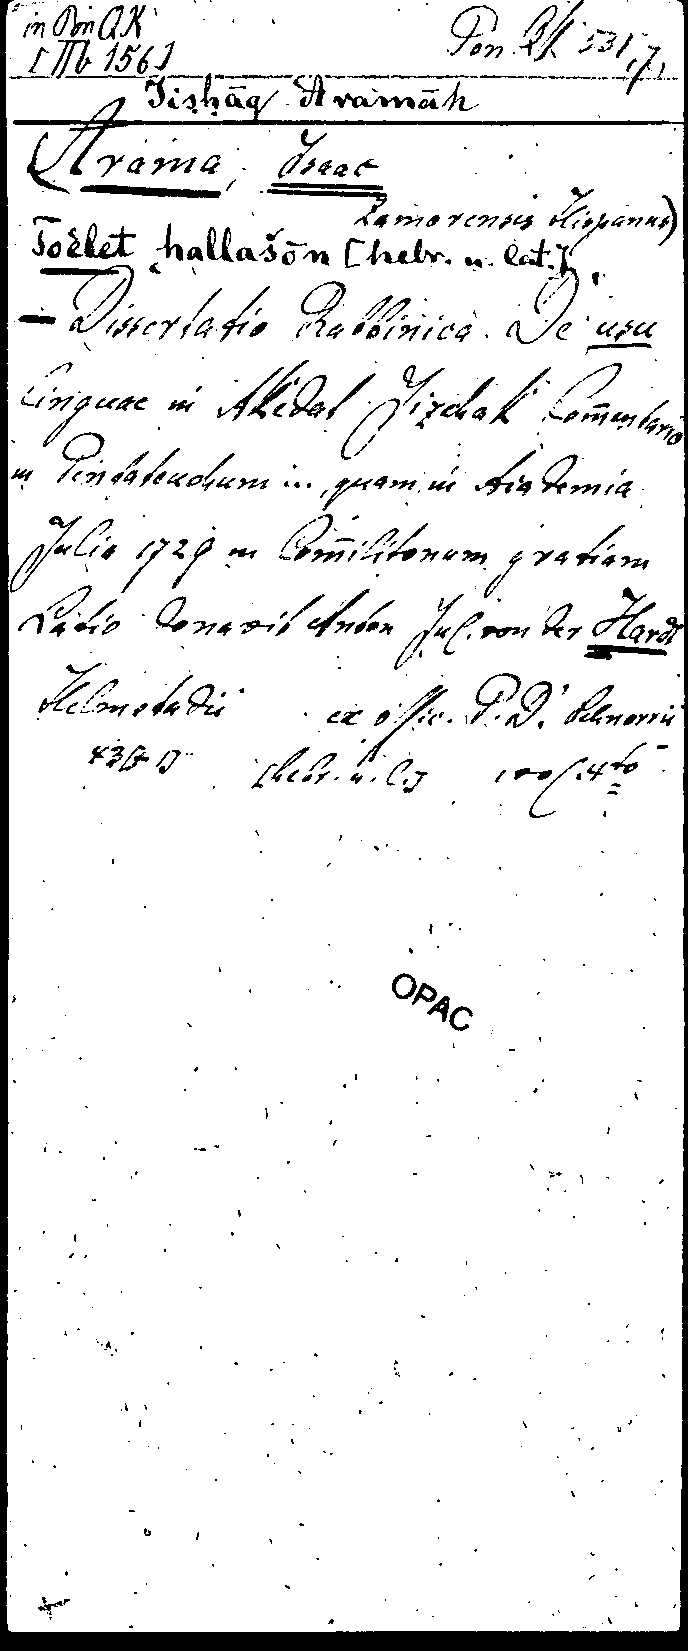 in Pon QK
[IIb 156]
Pon QK 531,7,
Jiṣḥāq Aramāh
(Arama, Isaac
Zamorensis Hispanus)
Toēlet hallašōn [hebr. u. lat.]
— Dissertatio Rabbinica. De usu
linguae in Akedat Jizchak Com̅entario
in Pentateuchum ... quam in Academia
Julia 1729 in Com̅ilitonum gratiam
Latio donavit Anton Jul. von der Hardt
Helmstadii ex offic. P. D. Schnorrii
[hebr. u. l.] 4to
OPAC